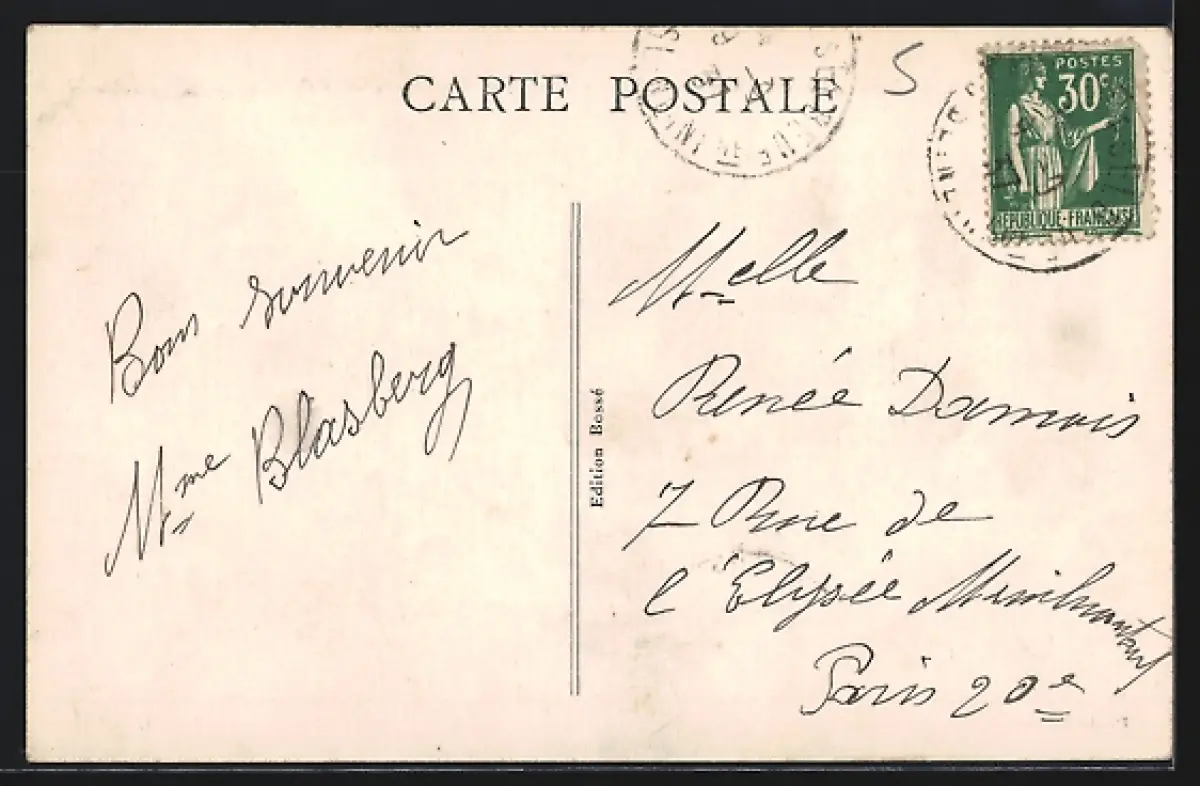 CARTE POSTALE
5
POSTES
30c
RÉPUBLIQUE-FRANÇAISE
Bon souvenir
Mme Blasberg
Edition Bossé
Melle
Renée Damois
7 Rue de
l'Elysée Ménilmontant
Paris 20e